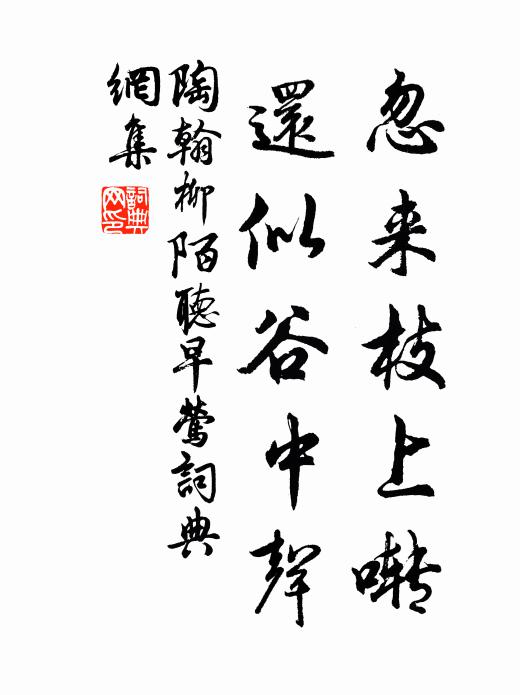 忽来枝上囀
還似谷中聲
陶翰柳陌聽早鶯詞典
網集
詞典
网印